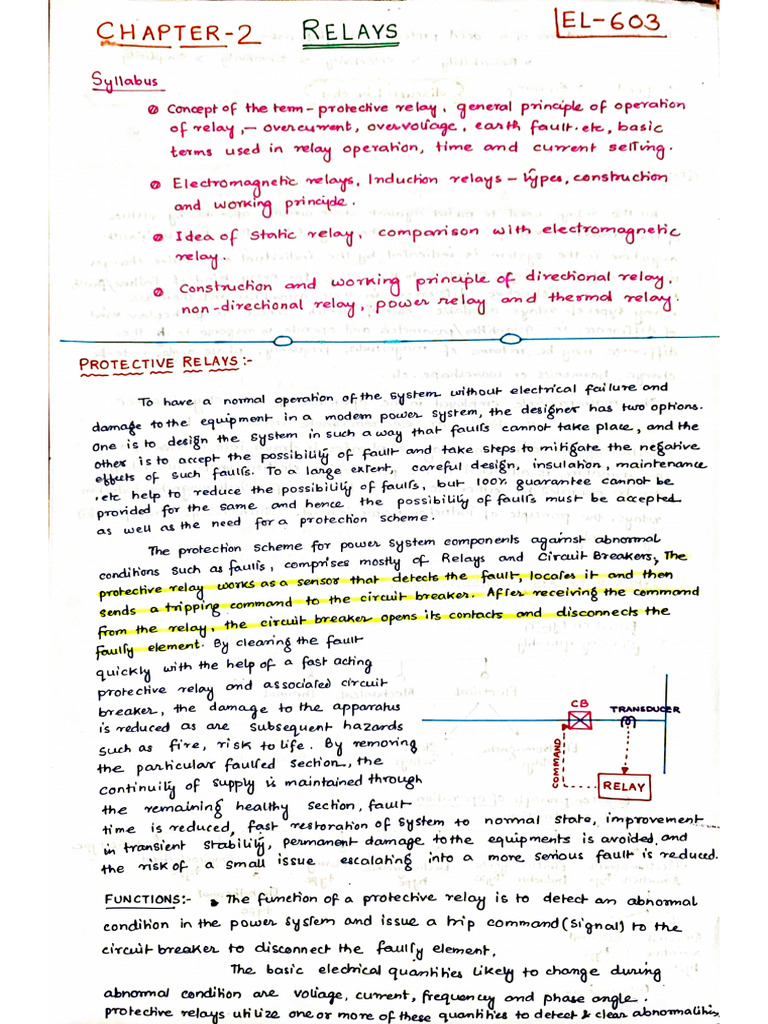 CHAPTER-2 RELAYS EL-603
Syllabus
Concept of the term - protective relay, general principle of operation
of relay, - overcurrent, overvoltage, earth fault. etc, basic
terms used in relay operation, time and current setting.
Electromagnetic relays, Induction relays - types, construction
and working principle.
Idea of static relay, comparison with electromagnetic
relay.
Construction and working principle of directional relay,
non-directional relay, power relay and thermal relay.
PROTECTIVE RELAYS:-
To have a normal operation of the system without electrical failure and
damage to the equipment in a modern power system, the designer has two options.
One is to design the system in such a way that faults cannot take place, and the
other is to accept the possibility of fault and take steps to mitigate the negative
effects of such faults. To a large extent, careful design, insulation, maintenance
.etc help to reduce the possibility of faults, but 100% guarantee cannot be
provided for the same and hence the possibility of faults must be accepted
as well as the need for a protection scheme.
The protection scheme for power system components against abnormal
conditions such as faults, comprises mostly of Relays and Circuit Breakers, The
protective relay works as a sensor that detects the fault, locates it and then
sends a tripping command to the circuit breaker. After receiving the command
from the relay, the circuit breaker opens its contacts and disconnects the
faulty element. By clearing the fault
quickly with the help of a fast acting
protective relay and associated circuit
breaker, the damage to the apparatus
is reduced as are subsequent hazards
such as fire, risk to life. By removing
the particular faulted section, the
continuity of supply is maintained through
the remaining healthy section, fault
time is reduced, fast restoration of system to normal state, improvement
in transient stability, permanent damage to the equipments is avoided and
the risk of a small issue escalating into a more serious fault is reduced.
CB
TRANSDUCER
COMMAND
RELAY
FUNCTIONS:- The function of a protective relay is to detect an abnormal
condition in the power system and issue a trip command (signal) to the
circuit breaker to disconnect the faulty element.
The basic electrical quantities likely to change during
abnormal condition are voltage, current, frequency and phase angle.
protective relays utilize one or more of these quantities to detect & clear abnormalities